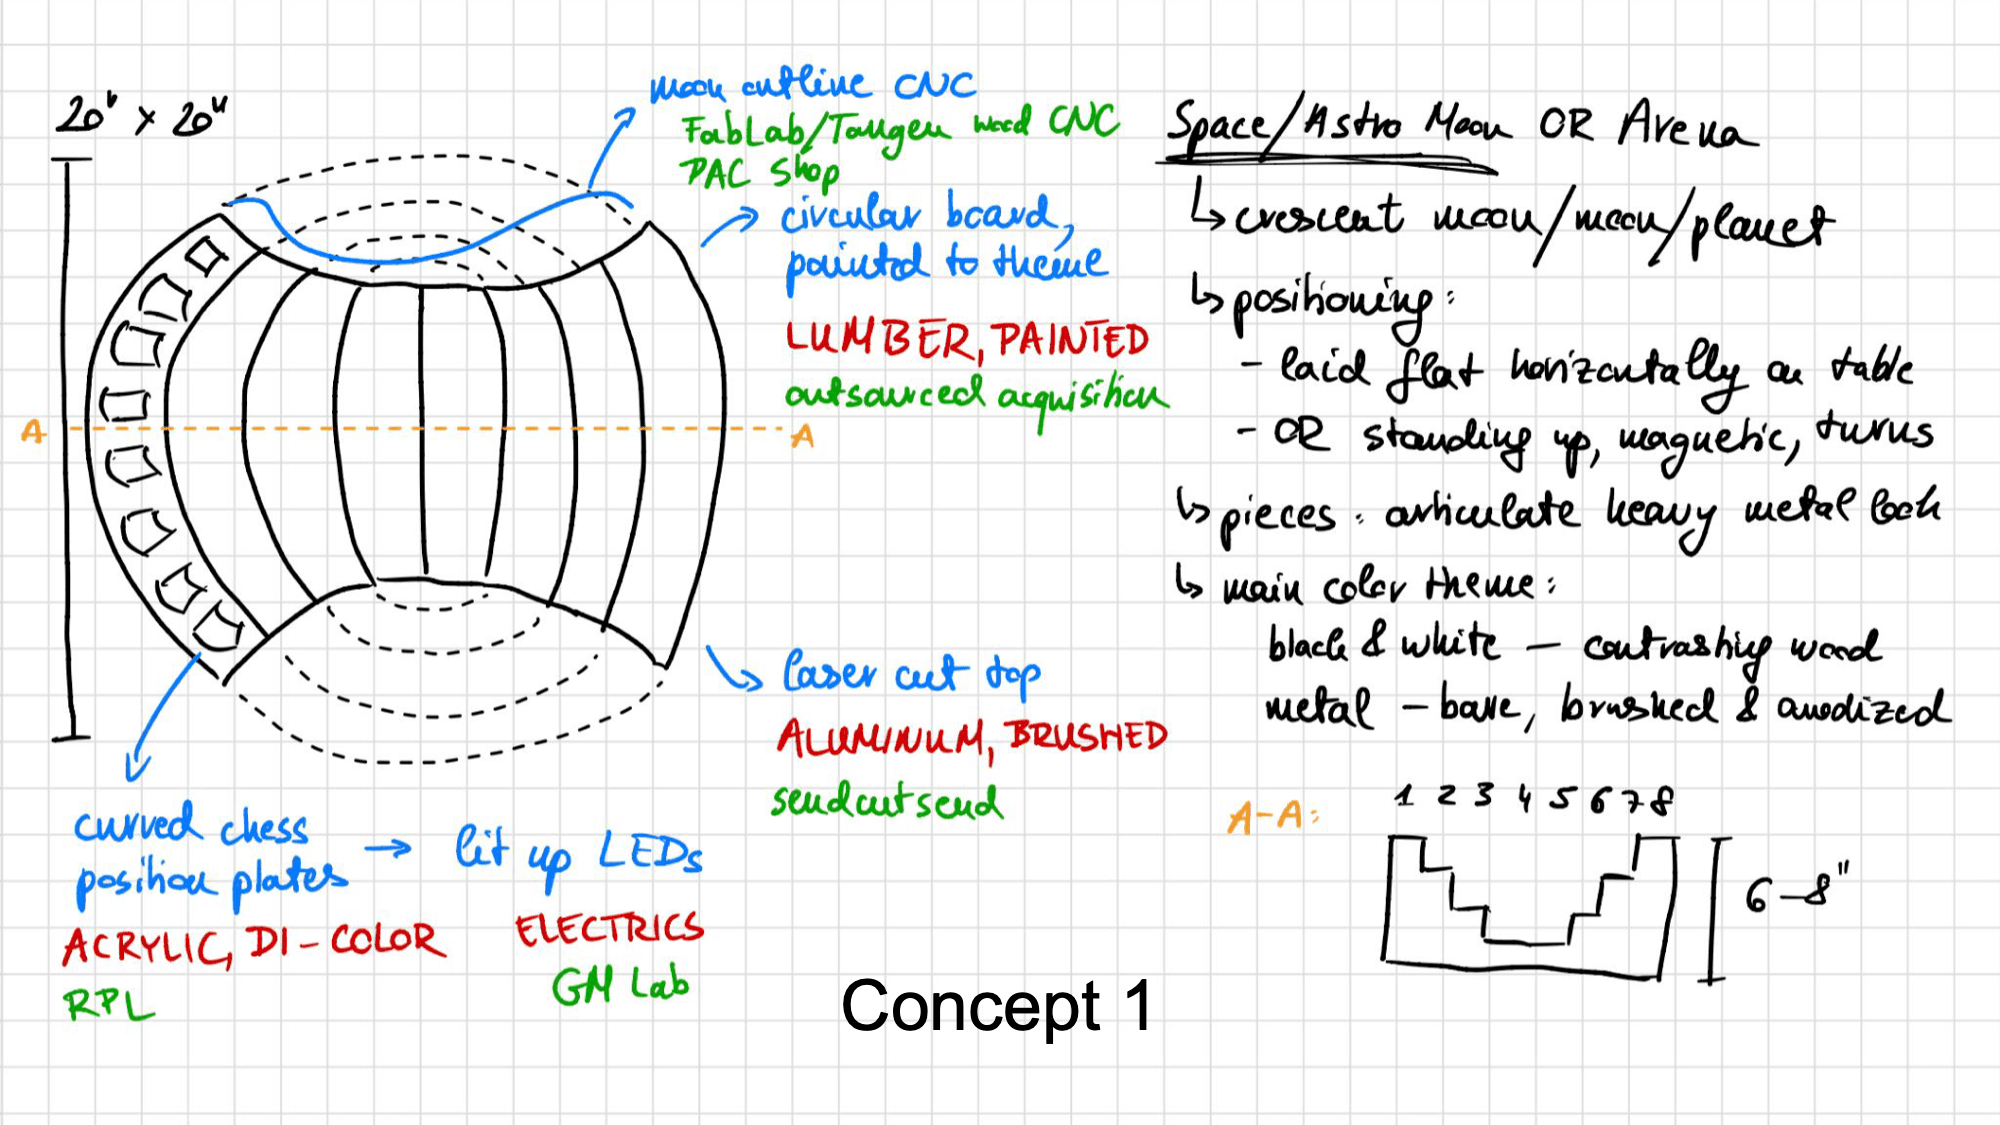 20" x 20"
moon outline CNC
FabLab/Tangen wood CNC
PAC Shop
circular board,
painted to theme
LUMBER, PAINTED
outsourced acquisition
A
A
laser cut top
ALUMINUM, BRUSHED
sendcutsend
curved chess
position plates → lit up LEDs
ACRYLIC, DI-COLOR
RPL
ELECTRICS
GM Lab
Concept 1
Space/Astro Moon OR Arena
↳ crescent moon/moon/planet
↳ positioning:
- laid flat horizontally on table
- OR standing up, magnetic, turns
↳ pieces: articulate heavy metal look
↳ main color theme:
black & white — contrasting wood
metal — bare, brushed & anodized
A-A:
1 2 3 4 5 6 7 8
6-8"